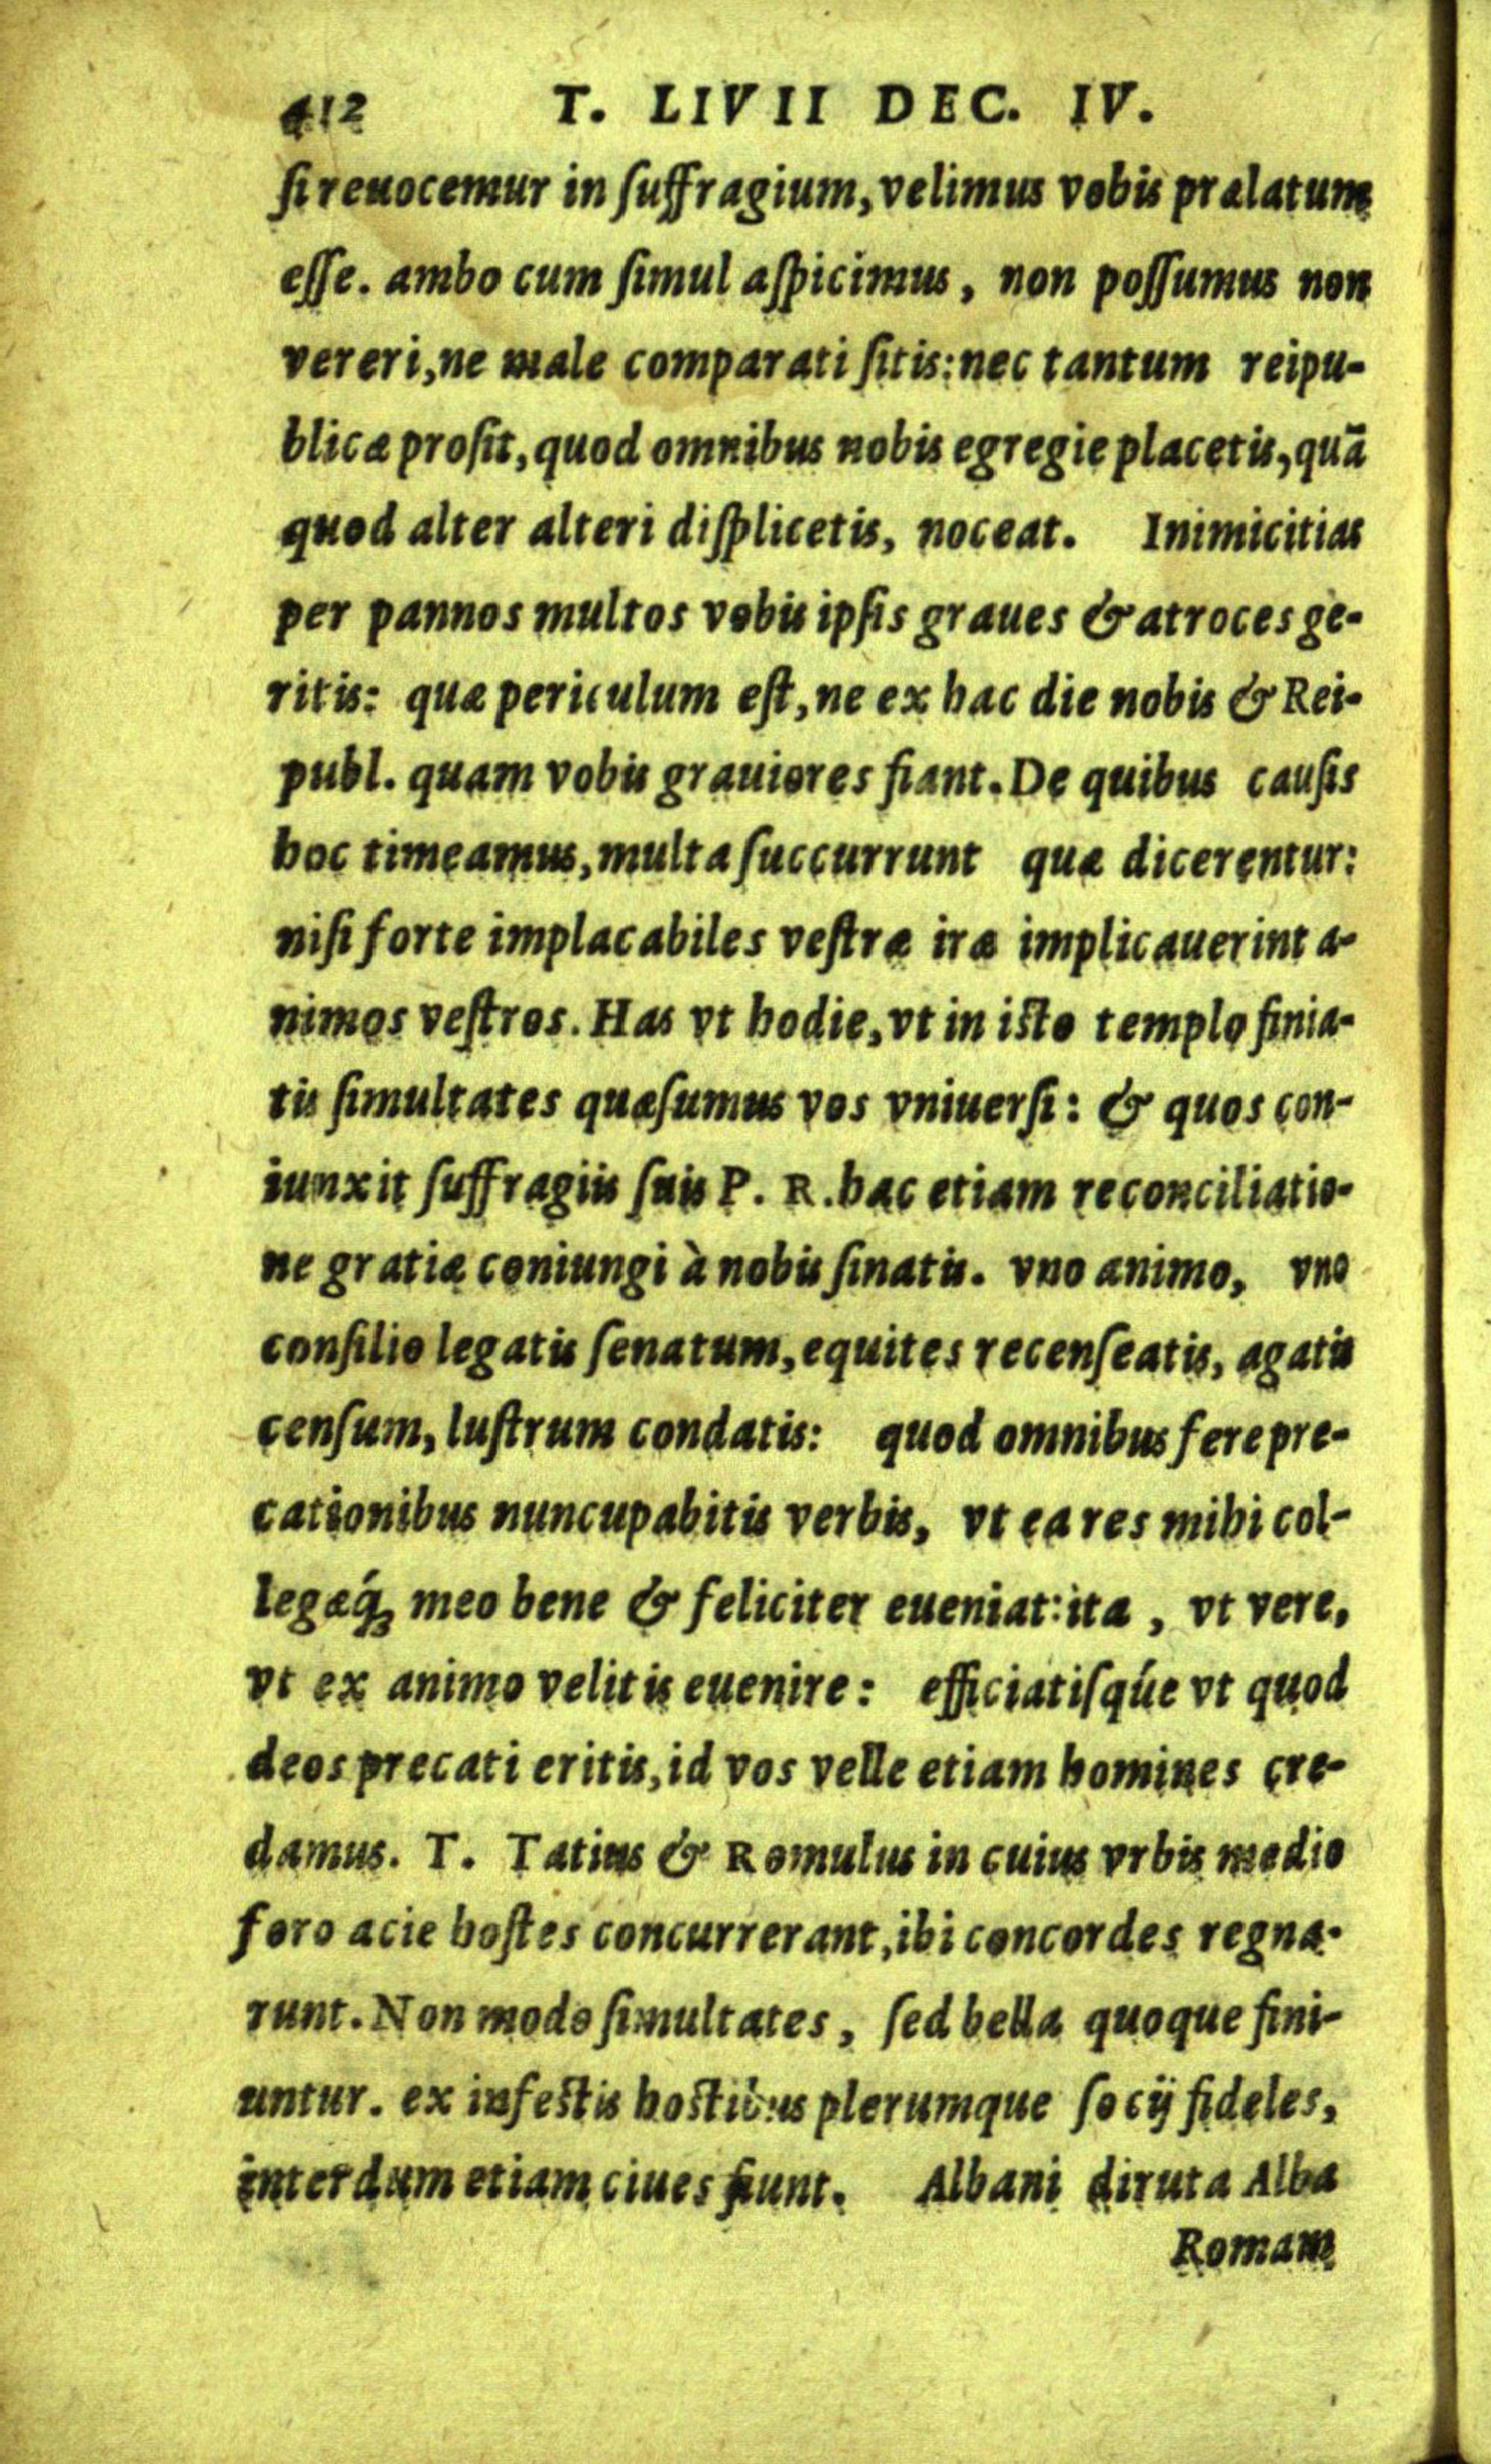 412 T. LIVII DEC. IV.
ſi reuocemur in ſuffragium, velimus vobis prælatum
eſſe. ambo cum ſimul aſpicimus, non poſſumus non
vereri, ne male comparati ſitis: nec tantum reipu-
blicæ proſit, quod omnibus nobis egregie placetis, quā
quod alter alteri diſplicetis, noceat. Inimicitias
per pannos multos vobis ipſis graues & atroces ge-
ritis: quæ periculum eſt, ne ex hac die nobis & Rei-
publ. quam vobis grauiores fiant. De quibus cauſis
hoc timeamus, multa ſuccurrunt quæ dicerentur:
niſi forte implacabiles veſtræ iræ implicauerint a-
nimos veſtros. Has vt hodie, vt in iſto templo finia-
tis ſimultates quæſumus vos vniuerſi: & quos con-
iunxit ſuffragiis ſuis P. R. hac etiam reconciliatio-
ne gratiæ coniungi à nobis ſinatis. vno animo, vno
conſilio legatis ſenatum, equites recenſeatis, agatis
cenſum, luſtrum condatis: quod omnibus fere pre-
cationibus nuncupabitis verbis, vt ea res mihi col-
legæq́; meo bene & feliciter eueniat: ita, vt vere,
vt ex animo velitis euenire: efficiatiſqúe vt quod
deos precati eritis, id vos velle etiam homines cre-
damus. T. Tatius & Romulus in cuius vrbis medio
foro acie hoſtes concurrerant, ibi concordes regna-
runt. Non modo ſimultates, ſed bella quoque fini-
untur. ex infeſtis hoſtibus plerumque ſocij fideles,
interdum etiam ciues fiunt. Albani diruta Alba
Romam